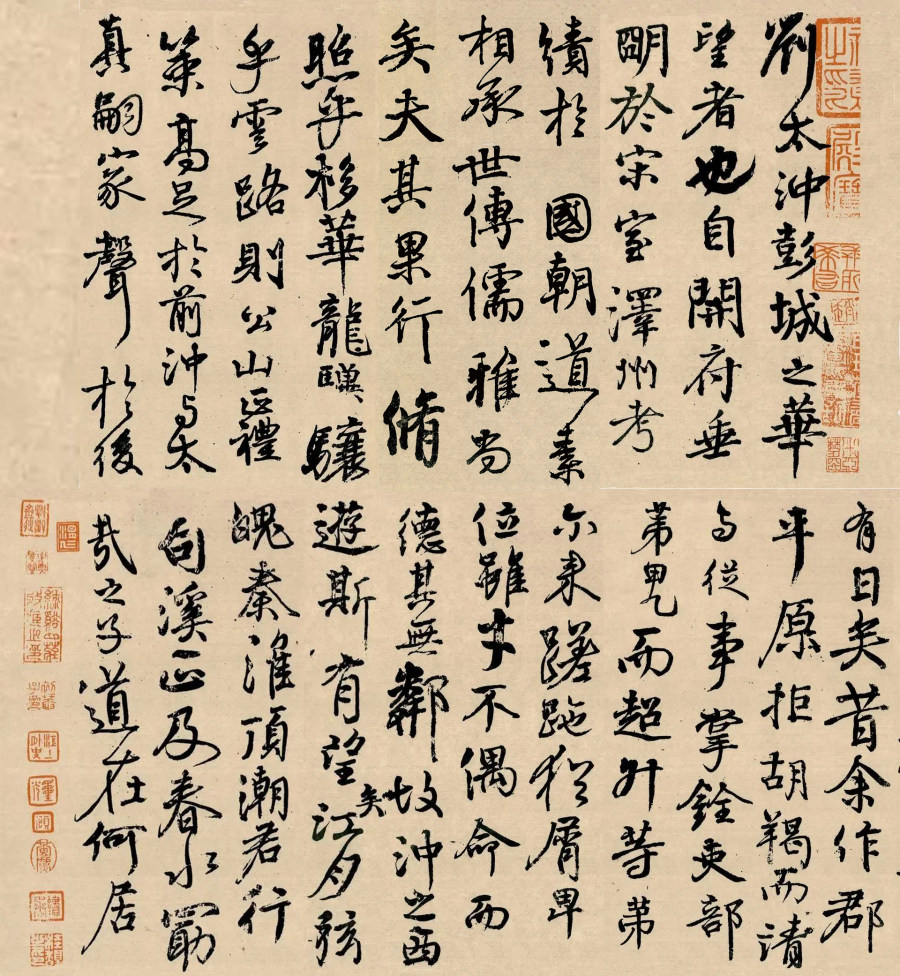 劉太沖彭城之華
望者也自開府垂
明於宋室澤州考
績於國朝道素
相承世傳儒雅尚
矣夫其果行脩
照乎移華龍驤
乎雲路則公山正禮
策高足於前沖与太
真嗣家聲於後
有日矣昔余作郡
平原拒胡羯而請
与從事掌銓吏部
第甲而超升等第
尔來蹉跎猶屑卑
位雖才不偶命而
德其無鄰故沖之西
遊斯有望矣江月弦
魄秦淮頂潮君行
句溪正及春水勖
哉之子道在何居